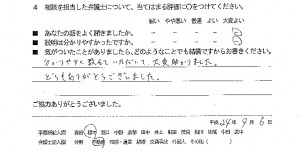 4 相談を担当した弁護士について、当てはまる評価に○をつけてください。
悪い やや悪い 普通 よい 大変よい
■ あなたの話をよく聞きましたか。
■ 説明は分かりやすかったですか。
■ 気がついたことがありましたら、どのようなことでも結構ですからお書きください。
分かりやすく教えていただいて、大変助かりました。
どうもありがとうございました。
ご協力ありがとうございました。
平成24年9月6日